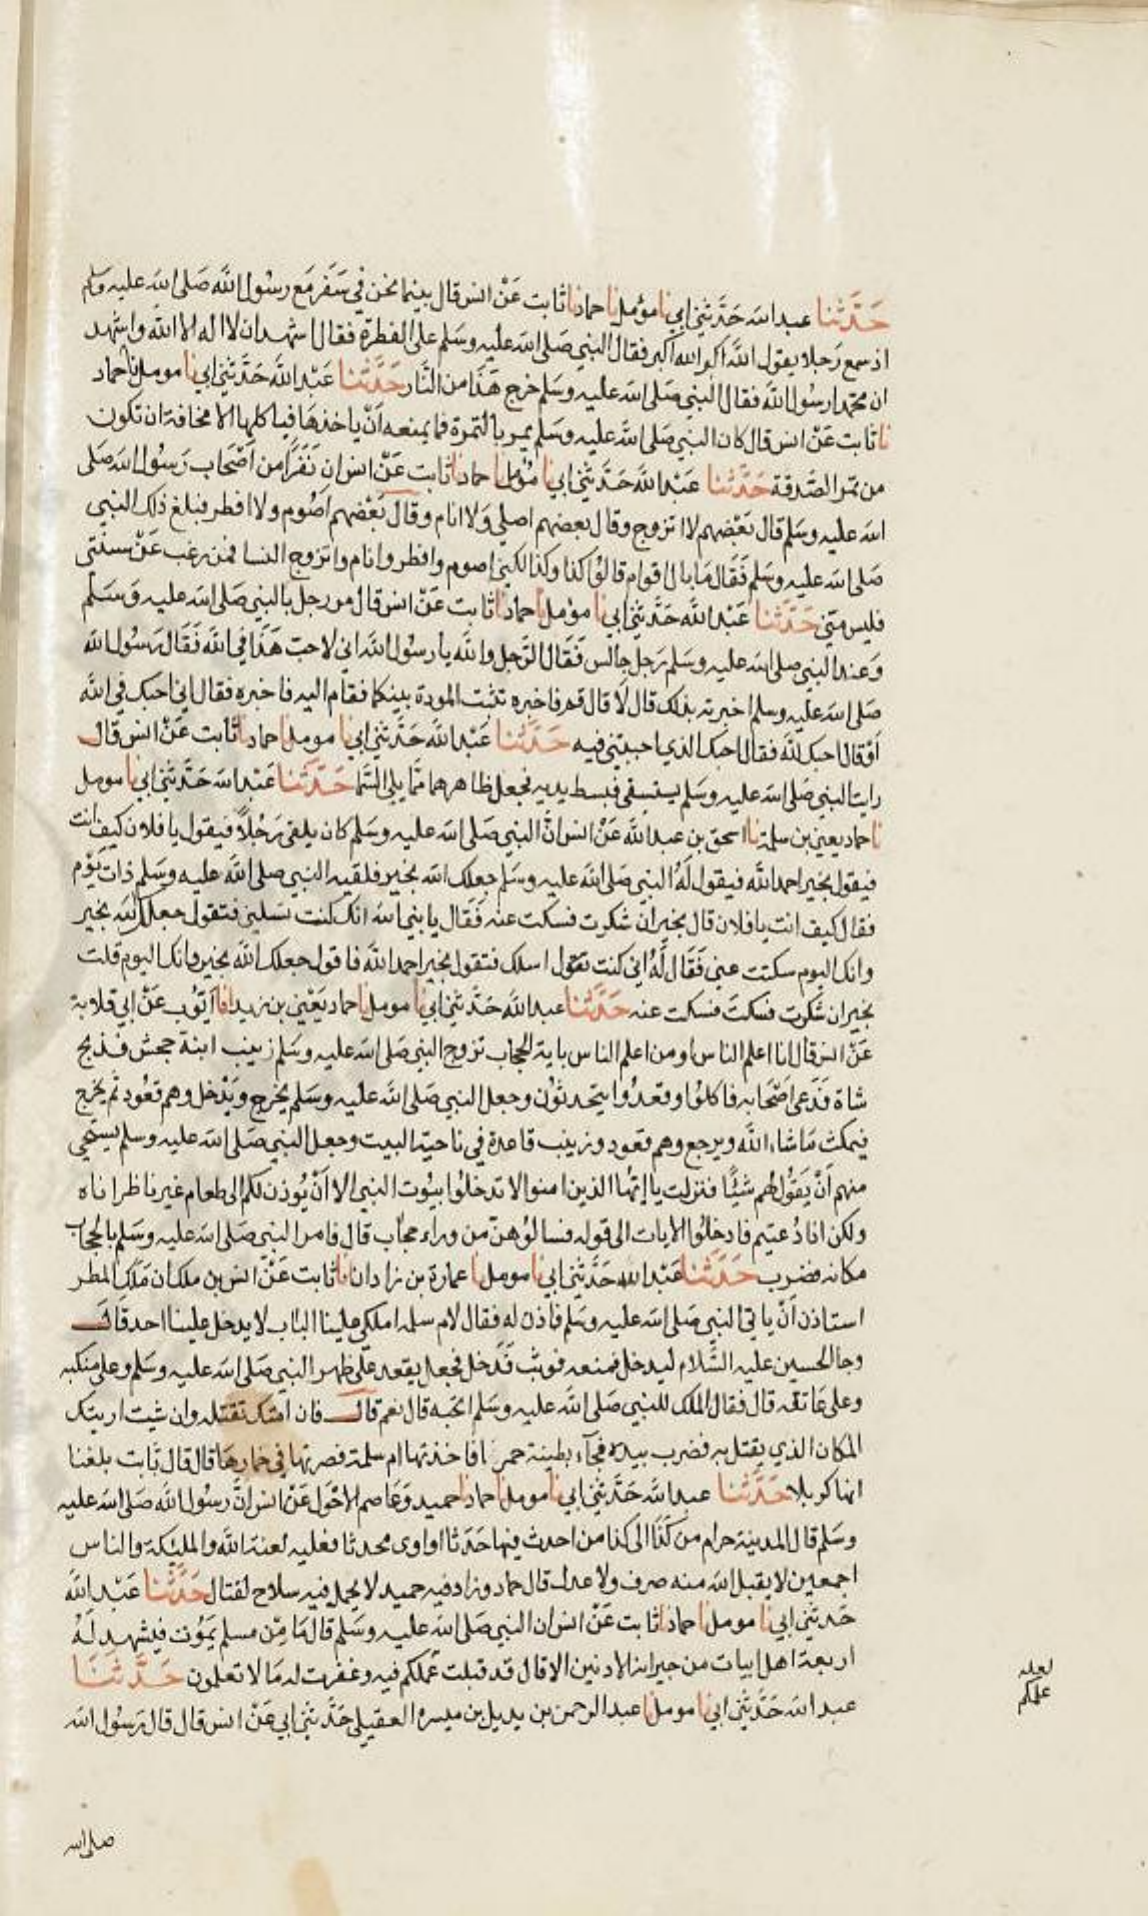 حَدَّثنا عبد الله حَدَّثني ابي نا مؤمل نا حماد نا ثابت عَنْ انس قال بينما نحن في سَفَر مَع رسُول الله صَلى الله عليه وسَلم
اذ سمع رَجلا يقول الله اكبر الله اكبر فقال النبي صَلى الله عليه وسَلم على الفطرة فقال اشهد ان لا اله الا الله واشهد
ان محمّدا رسُول الله فقال النبي صَلى الله عليه وسَلم خرج هَذا من النَّار حَدَّثنا عَبْد الله حَدَّثني ابي نا مومل نا حماد
نا ثابت عَنْ انس قال كان النبي صَلى الله عليه وسَلم يمر بالتمرة فما يمنعه اَنْ ياخذهَا فياكلها الا مخافة ان تكون
من تمر الصَّدقة حَدَّثنا عَبْد الله حَدَّثني ابي نا مؤمل نا حماد نا ثابت عَنْ انس ان نَفَرًا من اَصْحاب رَسُول الله صَلى
الله عليه وسَلم قال بَعْضهم لا اتزوج وقال بعضهم اصلي وَلا انام وقال بَعْضهم اصُوم ولا افطر فبلغ ذلك النبي
صَلى الله عليه وسَلم فَقَال مَا بال اقوام قالوُا كذا وكذا لكني اصوم وافطر وانام واتزوج النسا فمن رغب عَنْ سنتى
فليس مني حَدَّثنا عَبْد الله حَدَّثني ابي نا مؤمل نا حماد نا ثابت عَنْ انس قال مر رجل بالنبي صَلى الله عليه وَسَلم
وَعند النبي صلى الله عليه وسَلم رَجل جالس فَقَال الرّجل والله يا رسُول الله اني لاحبّ هَذَا في الله فَقَال رَسُول الله
صَلى الله عَليه وسلم اخبرته بذلك قال لَا قال قم فاخبره تثبت المودة بينكما فقام اليه فاخبره فقال اني احبك في الله
اَوْ قال احبك لله فقال احبك الذي احببتني فيه حَدَّثنا عَبْد الله حَدَّثني ابي نا مومل نا حماد نا ثابت عَنْ انس قال
رايت النبي صَلى الله عليه وسَلم يستسقي فبسط يديه فجعل ظاهرهما ممّا يلي السَّما حَدَّثنا عَبْد الله حَدَّثني ابي نا مومل
نا حماد يعني بن سلمة نا اسحق بن عبد الله عَنْ انس انَّ النبي صَلى الله عليه وسَلم كان يلقى رَجُلاً فيقول يا فلان كيف انت
فيقول بخير احمد الله فيقول لَهُ النبي صَلى الله عليه وسَلم جعلك الله بخير فلقيه النبي صلى الله عليه وسَلم ذات يَوْم
فقال كيف انت يا فلان قال بخير ان شكرت فسكت عنه فَقَال يا نبي الله انك كنت تسلني فتقول جعلك الله بخير
وانك اليوم سكتت عني فَقَال لَهُ اني كنت تقول اسلك فتقول بخير احمد الله فاقول جعلك الله بخير وانك اليوم قلت
بخير ان شكرت فسكتَ فسكت عنه حَدَّثنا عبد الله حَدَّثني ابي نا مومل نا حماد يَعْني بن زيد انا اَيّوُب عَنْ ابي قلابة
عَنْ انس قال انا اعلم الناس او من اعلم الناس باية الحجاب تزوج النبي صَلى الله عليه وسَلم زينب ابنة جحش فَذبح
شاة فَدَعى اَصْحَابه فاكلوُا وقعدُوا يتحدثوُن وجعل النبي صَلى الله عليه وسَلم يخرج ويَدْخل وهم قعُود ثم يخرج
فيمكث مَا شاء الله ويرجع وهم قعود وزينب قاعدة في ناحية البيت وجعل النبي صَلى الله عليه وسلم يستحي
منهم اَنْ يَقُول لهم شَيْئًا فنزلت يا ايّها الذين امنوا لا تدخلوُا بيوُت النبي الا اَنْ يُوذن لكم الى طعام غير ناظرا ناه
ولكن اذا دُعيتم فادخلوُا الايات الى قوله فسالوُهنّ من وراء حجاب قال فامر النبي صَلى الله عليه وسَلم بالحجاب
مكانه فضرب حَدَّثنا عَبْد الله حَدَّثني ابي نا مومل نا عمارة بن زادان نا ثابت عَنْ انس بن ملك ان مَلَك المطر
استاذن اَنْ ياتي النبي صَلى الله عليه وسَلم فاذن له فقال لام سلمه املكي علينا الباب لا يدخل علينا احد قَال
وجا الحسين عليه السَّلام ليدخل فمنعه فوثب فَدخل فجعل يقعد عَلى ظهر النبي صَلى الله عليه وسَلم وعلى منكبه
وعلى عَاتقه قال فقال الملك للنبي صَلى الله عليه وسَلم اتحبه قال نعم قال فان امتك تقتله وان شيت اريتك
المكان الذي يقتل به فضرب بيده فجآء بطينة حمرا فاخذتها ام سلمة فصرتها في خمارهَا قال قال ثابت بلغنا
انها كربلا حَدَّثنا عبد الله حَدَّثني ابي نا مومل نا حماد نا حميد وَعَاصم الاحْول عَنْ انس انَّ رَسُول الله صَلى الله عليه
وسَلم قال المدينة حرام من كَذَا الى كذا من احدث فيها حَدَثا او اوى محدثا فعليه لعنة الله والمليكة والناس
اجمعين لا يقبل الله منه صرف ولا عدل قال حماد وزاد فيه حميد لا يحمل فيه سلاح لقتال حَدَّثنا عَبْد الله
حَدثني ابي نا مومل نا حماد نا ثابت عَنْ انس ان النبي صَلى الله عليه وسَلم قال مَا مِنْ مسلم يَموُت فيشهد لَهُ
اربعة اهل ابيات من جيرانه الادنين الا قال قد قبلت عَملكم فيه وغفرت له مَا لا تعلمون حَدَّثنَا
لعله
علمكم
عبد الله حَدَّثني ابي نا مومل نا عبد الرحمن بن بديل بن ميسره العقيلي حَدَّثني ابي عَنْ انس قال قال رَسُول الله
صلى الله